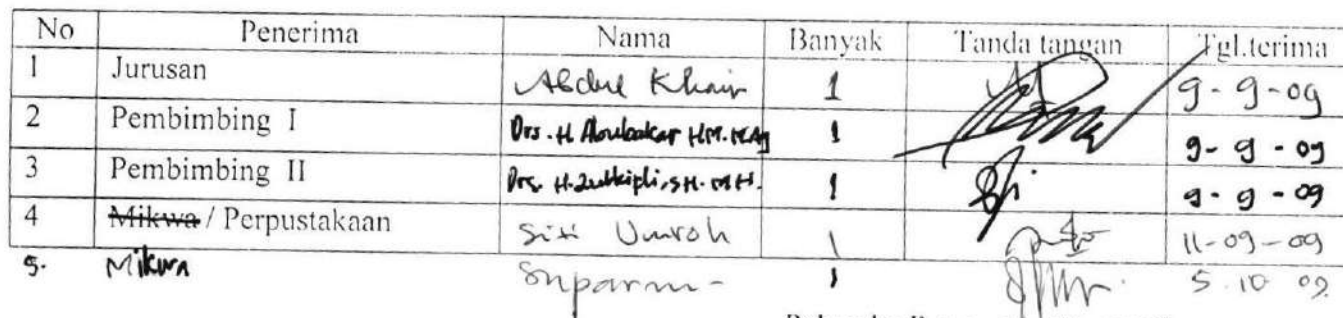 No Penerima Nama Banyak Tanda tangan Tgl.terima
1 Jurusan Abdul Khair 1 9-9-09
2 Pembimbing I Drs. H Abubakar HM. M.Ag 1 9-9-09
3 Pembimbing II Drs. H. Zulkipli, SH. MH. 1 9-9-09
4 Mikwa / Perpustakaan Siti Umroh 1 11-09-09
5. Mikwa Suparni 1 5.10 09